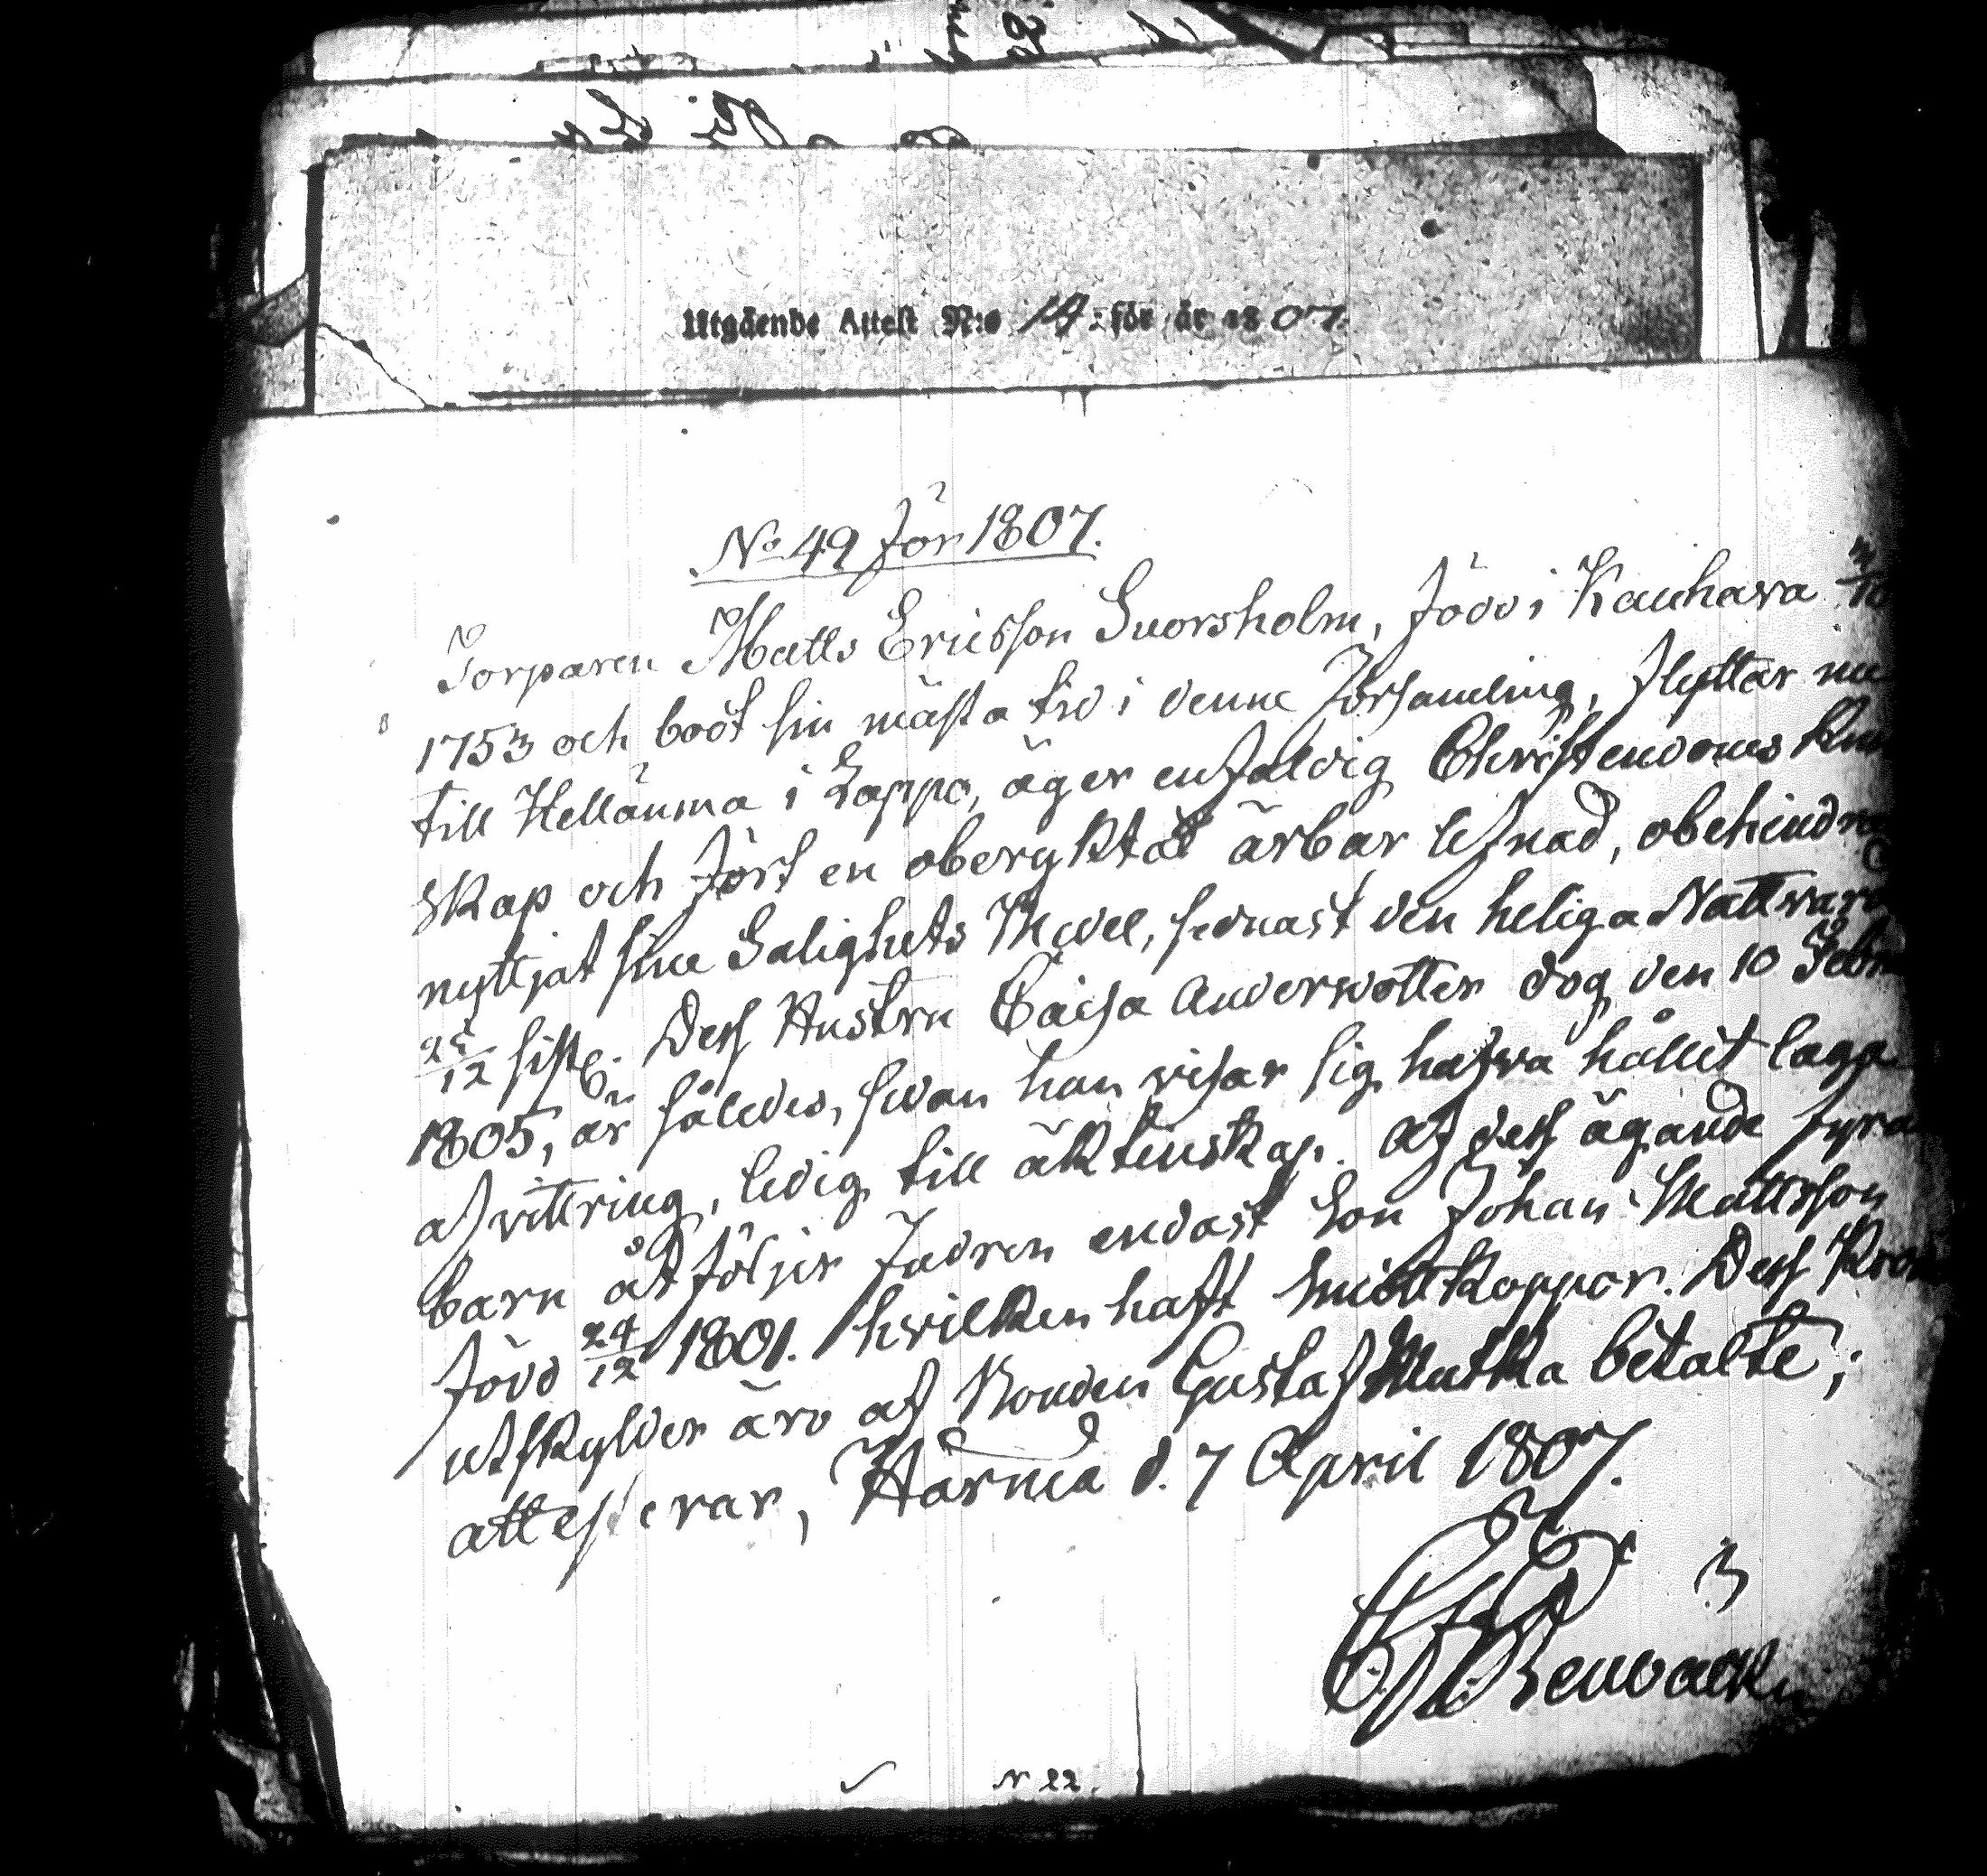 Utgående Attest N:o 14: för år 1807.
No 49 för 1807.
Torparen Matts Ericsson Suorsholm, född i Kauhava
1753 och bodt sin mästa tid i denne Församling, flyttar nu
till Hellanmaa i Lappo, äger enfaldig Christendoms Kun
skap och fört en oberyktad ärbar lefnad, obehindrad
nyttjat sine Salighets Medel, sednast den heliga Nattvard
25/12 sistl. Dess Hustru Caisa Andersdotter dog den 10 Febr
1805, är således, sedan han visar sig hafva hållit laga
afvittring, ledig till äktenskap. Af dess ägande fyra
barn åtföljer Fadren endast Son Johan Mattsson
född 24/12 1801. hvilken haft Småkoppor. Dess Kro
utskylder äro af Bonden Gustaf Matka betalte;
attesterar, Härmä d. 7 April 1807.
N 22.